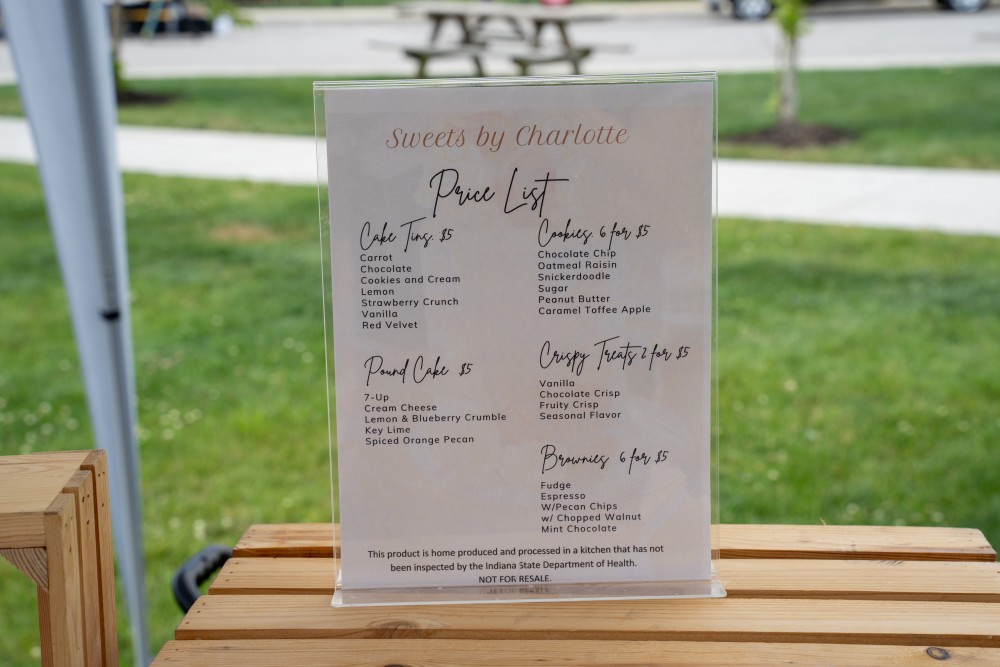 Sweets by Charlotte
Price List
Cake Tins. $5
Carrot
Chocolate
Cookies and Cream
Lemon
Strawberry Crunch
Vanilla
Red Velvet
Pound Cake $5
7-Up
Cream Cheese
Lemon & Blueberry Crumble
Key Lime
Spiced Orange Pecan
Cookies. 6 for $5
Chocolate Chip
Oatmeal Raisin
Snickerdoodle
Sugar
Peanut Butter
Caramel Toffee Apple
Crispy Treats 2 for $5
Vanilla
Chocolate Crisp
Fruity Crisp
Seasonal Flavor
Brownies 6 for $5
Fudge
Espresso
W/Pecan Chips
w/ Chopped Walnut
Mint Chocolate
This product is home produced and processed in a kitchen that has not
been inspected by the Indiana State Department of Health.
NOT FOR RESALE.